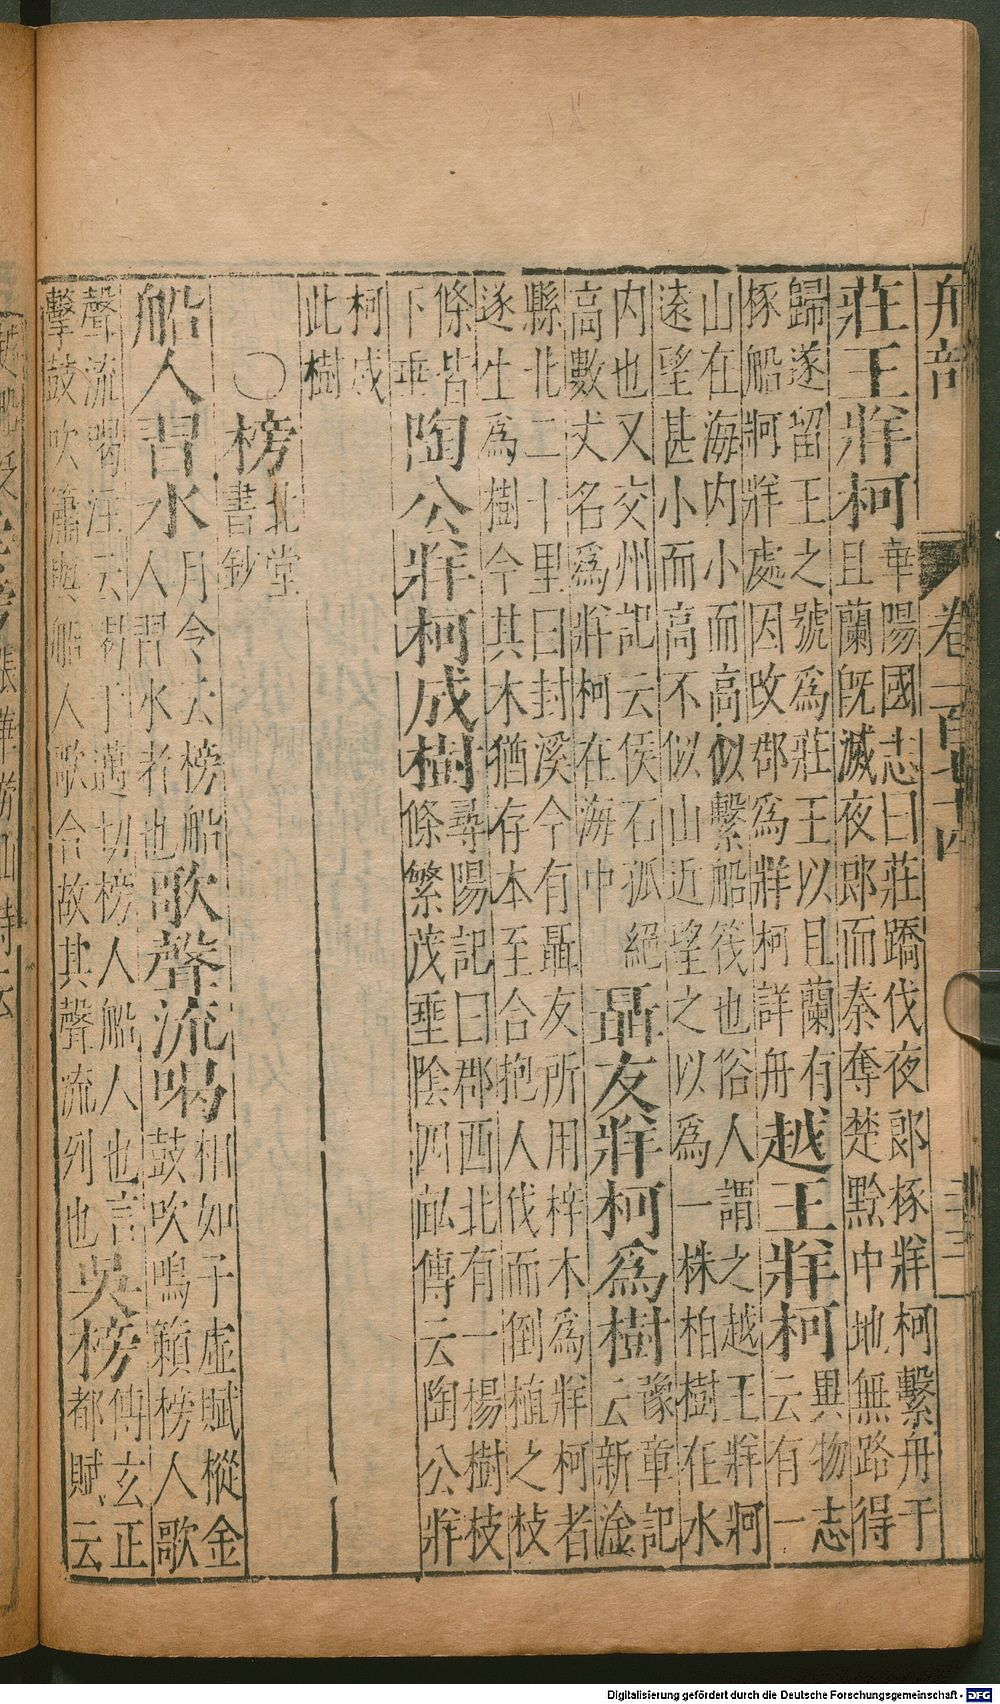 舟部
莊王牂柯
華陽國志曰莊蹻伐夜郎椓牂柯繫舟于
且蘭旣滅夜郎而秦奪楚黔中地無路得
歸遂留王之號爲莊王以且蘭有
椓船牁牂處因改郡爲牂柯詳舟
越王牂柯
異物志
云有一
山在海内小而高似繫船筏也俗人謂之越王牂牁
遠望甚小而高不似山近望之以爲一株柏樹在水
内也又交州記云侯石孤絕
高數丈名爲牂柯在海中
聶友牂柯爲樹
豫章記
云新淦
縣北二十里曰封溪今有聶友所用梓木爲牂柯者
遂生爲樹今其木猶存本至合抱人伐而倒植之枝
條皆
下垂
陶公牂柯成樹
尋陽記曰郡西北有一楊樹枝
條繁茂垂陰四畝傳云陶公牂
柯成
此樹
○榜
北堂
書鈔
船人習水
月令去榜船
人習水者也
歌聲流喝
相如子虛賦樅金
鼓吹鳴籟榜人歌
聲流喝注云喝丁邁切榜人船人也言
擊鼓吹簫與船人歌合故其聲流列也
吳榜
傅玄正
都賦云
Digitalisierung gefördert durch die Deutsche Forschungsgemeinschaft - DFG